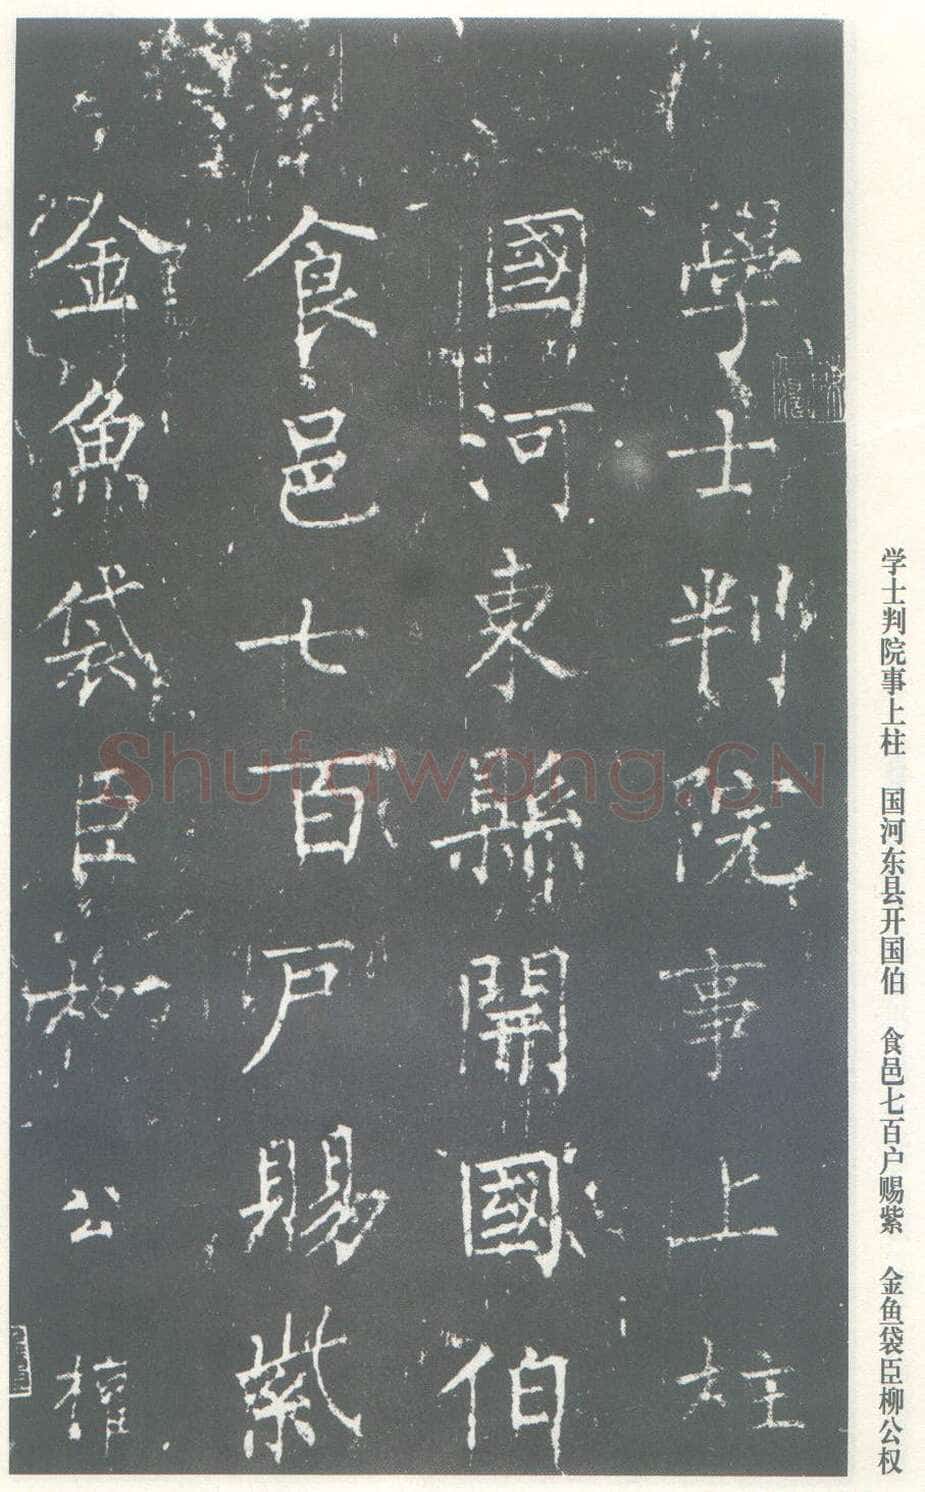 學士判院事上柱
國河東縣開國伯
食邑七百户賜紫
金魚袋臣柳公權
学士判院事上柱 国河东县开国伯 食邑七百户赐紫 金鱼袋臣柳公权
Shufawang.CN